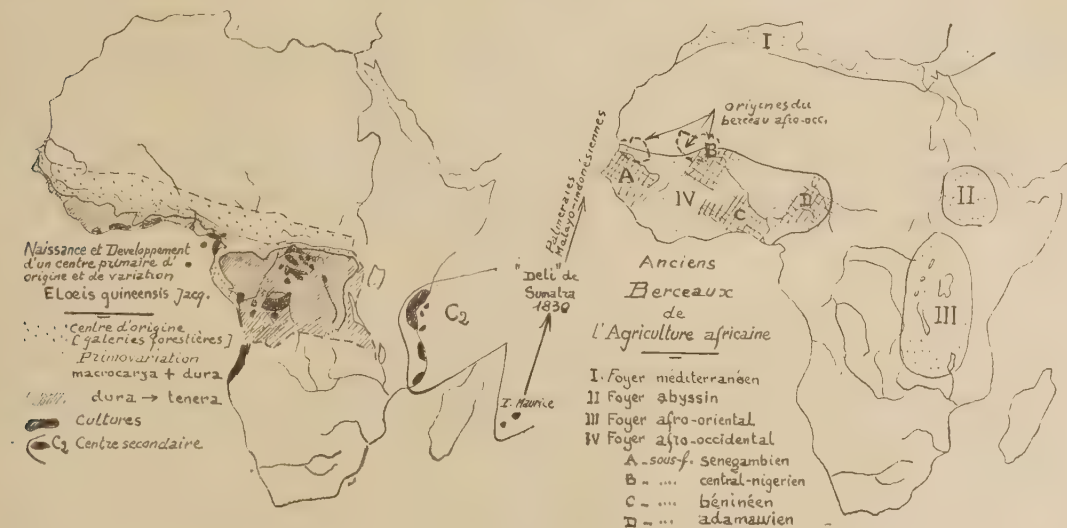 Naissance et Developpement
d'un centre primaire d'
origine et de variation
Elœis guineensis Jacq.
Centre d'origine
[galeries forestières]
Primovariation
macrocarya + dura
dura → tenera
Cultures
C2 Centre secondaire
C2
I. Maurice
"Deli" de
Sumatra
1830
Palmeraies
Malayo-indonésiennes
I
origines du
berceau afro-occ.
A
B
IV
C
D
II
III
Anciens
Berceaux
de
l'Agriculture africaine
I. Foyer méditerranéen
II Foyer abyssin
III Foyer afro-oriental
IV Foyer afro-occidental
A - sous-f. Sénégambien
B - .... central-nigérien
C - .... béninéen
D - ... adamawien